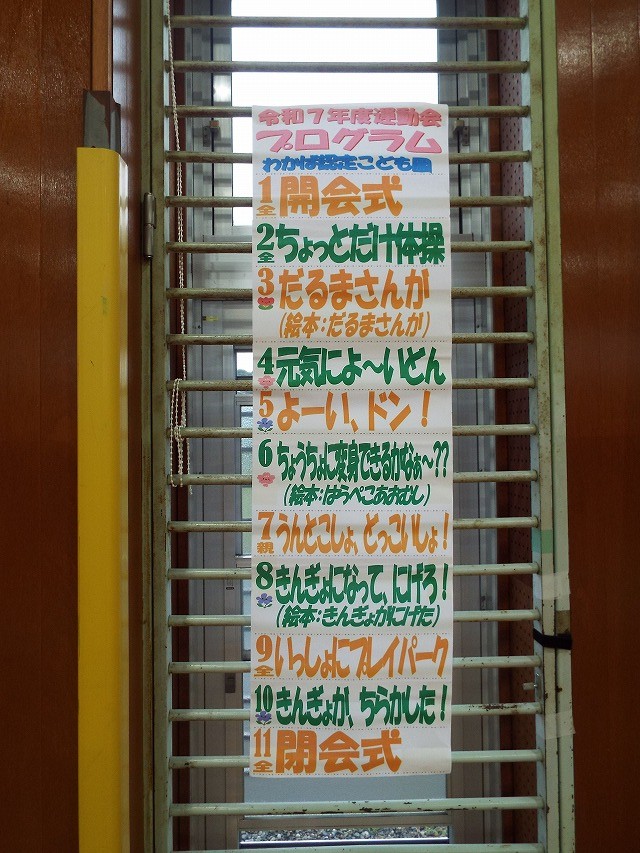 令和7年度運動会
プログラム
わかば認定こども園
1 全 開会式
2 全 ちょっとだけ体操
3 だるまさんが
(絵本:だるまさんが)
4 元気によ〜いとん
5 よーい、ドン!
6 ちょうちょに変身できるかなぁ〜??
(絵本:はらぺこあおむし)
7 親 うんとこしょ、どっこいしょ!
8 きんぎょになって、にげろ!
(絵本:きんぎょがにげた)
9 全 いっしょにプレイパーク
10 きんぎょが、ちらかした!
11 全 閉会式